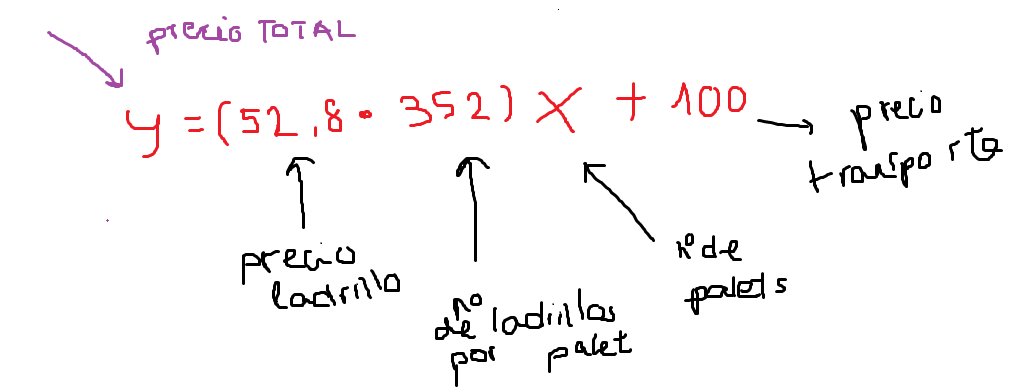 precio TOTAL
y = (52,8 · 352) X + 100
precio
transporte
precio
ladrillo
nº
de ladrillos
por palet
nº de
palets